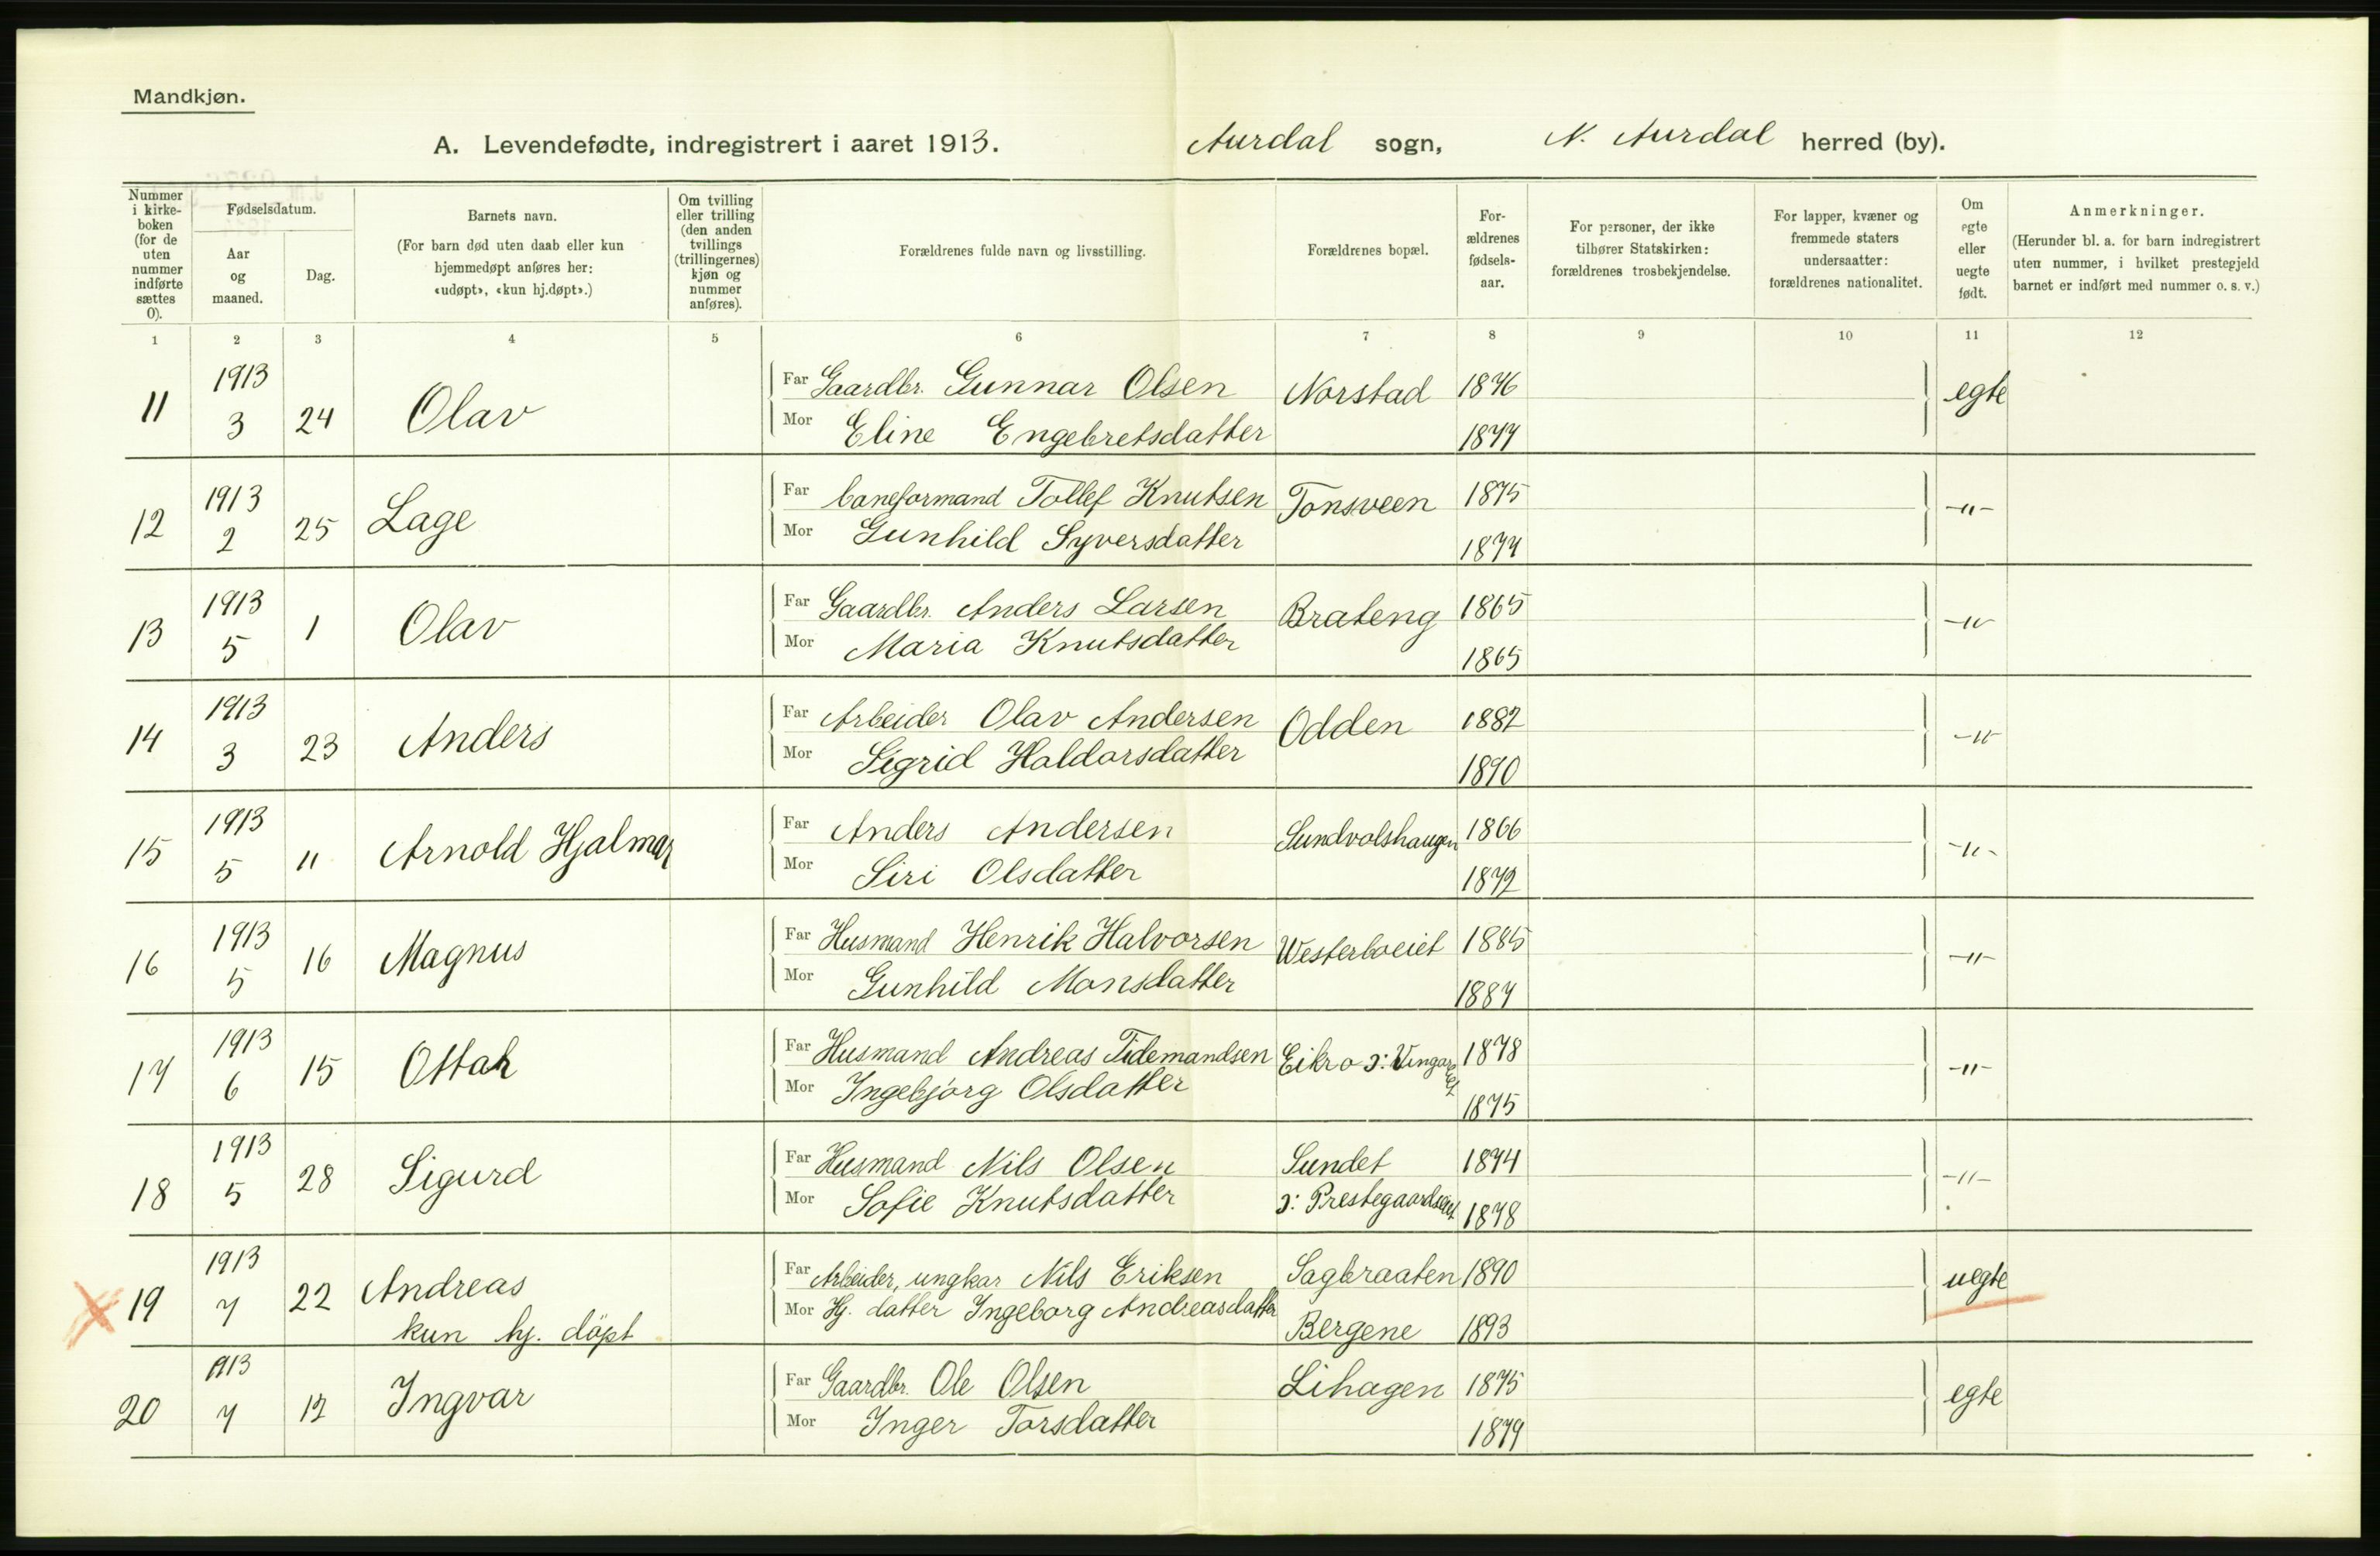 Mandkjøn.
A. Levendefødte, indregistrert i aaret 1913. Aurdal sogn, N. Aurdal herred (by).
Nummer i kirke-boken (for de uten nummer indførte sættes 0).
Fødselsdatum.
Aar og maaned.
Dag.
Barnets navn.
(For barn død uten daab eller kun hjemmedøpt anføres her: «udøpt», «kun hj.døpt».)
Om tvilling eller trilling (den anden tvillings (trillingernes) kjøn og nummer anføres).
Forældrenes fulde navn og livsstilling.
Forældrenes bopæl.
For-ældrenes fødsels-aar.
For personer, der ikke tilhører Statskirken: forældrenes trosbekjendelse.
For lapper, kvæner og fremmede staters undersaatter: forældrenes nationalitet.
Om egte eller uegte født.
Anmerkninger.
(Herunder bl. a. for barn indregistrert uten nummer, i hvilket prestegjeld barnet er indført med nummer o. s. v.)
1 2 3 4 5 6 7 8 9 10 11 12
11 1913 3 24 Olav Far Gaardbr. Gunnar Olsen Norstad 1876 egte
Mor Eline Engebretsdatter 1877
12 1913 2 25 Lage Far baneformand Tollef Knutsen Tonsveen 1875 -"-
Mor Gunhild Syversdatter 1877
13 1913 5 1 Olav Far Gaardbr. Anders Larsen Brateng 1865 -"-
Mor Maria Knutsdatter 1865
14 1913 3 23 Anders Far Arbeider Olav Andersen Odden 1882 -"-
Mor Sigrid Haldorsdatter 1890
15 1913 5 11 Arnold Hjalmar Far Anders Andersen Sundvolshaugen 1866 -"-
Mor Siri Olsdatter 1872
16 1913 5 16 Magnus Far Husmand Henrik Halvorsen Westerboeiet 1885 -"-
Mor Gunhild Monsdatter 1887
17 1913 6 15 Ottar Far Husmand Andreas Tidemandsen Eikro ɔ: Vingareiet 1878 -"-
Mor Ingebjørg Olsdatter 1875
18 1913 5 28 Sigurd Far Husmand Nils Olsen Sundet 1874 -"-
Mor Sofie Knutsdatter ɔ: Prestegaardseiet 1878
19 1913 7 22 Andreas Far Arbeider, ungkar Nils Eriksen Sagbraaten 1890 uegte
kun hj. döpt Mor Hj. datter Ingeborg Andreasdatter Bergene 1893
20 1913 7 12 Ingvar Far Gaardbr. Ole Olsen Lihagen 1875 egte
Mor Inger Torsdatter 1879